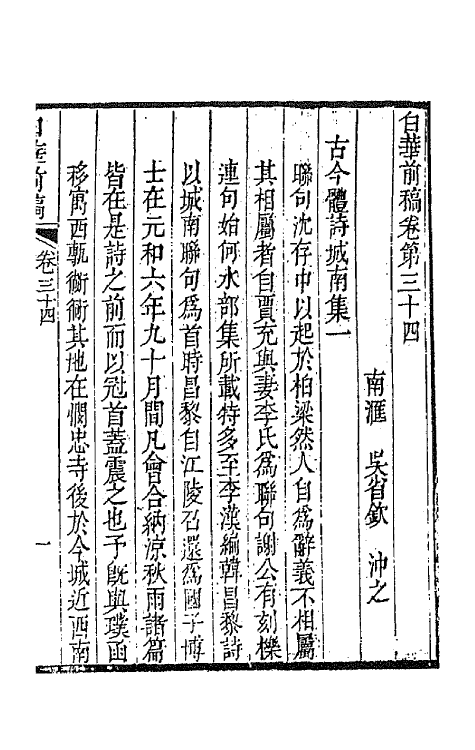 白華前稿卷第三十四
南滙　吳省欽　沖之
古今體詩城南集一
聯句沈存中以起於柏梁然人自爲辭義不相屬
其相屬者自賈充與妻李氏爲聯句謝公有刻櫟
連句始何水部集所載特多至李漢編韓昌黎詩
以城南聯句爲首時昌黎自江陵召還爲國子博
士在元和六年九十月間凡會合納涼秋雨諸篇
皆在是詩之前而以冠首蓋震之也予旣與璞函
移寓西軏衚衕其地在憫忠寺後於今城近西南
白華前稿
卷三十四
一